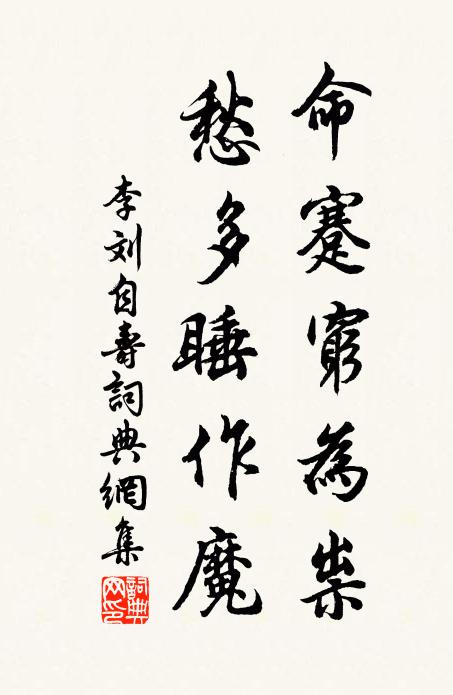 命蹇窮為祟
愁多睡作魔
李刘自壽詞典網集
詞典网印